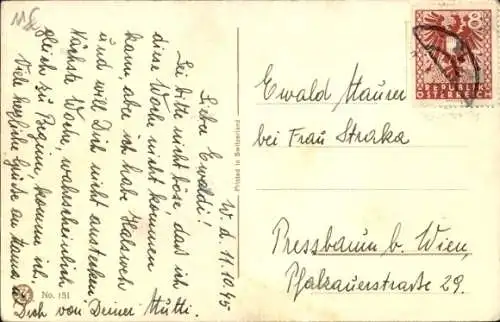 W. d. 11.10.45
Lieber Ewaldi!
Sei bitte nicht böse, daß ich
diese Woche nicht kommen
kann, aber ich habe Halsweh
und will Dich nicht anstecken.
Nächste Woche, wahrscheinlich
gleich zu Beginn, komme ich
Viele herzliche Grüße an
Dich von Deiner Mutti.
No. 151
Printed in Switzerland
8
REPUBLIK
ÖSTERREICH
Ewald Maurer
bei Frau Straka
Pressbaum b. Wien,
Pfalzauerstraße 29.